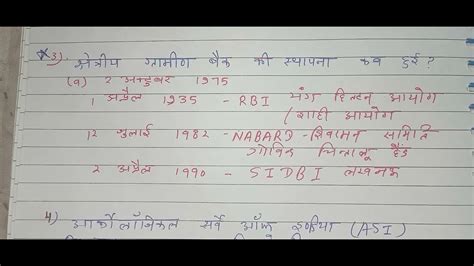 *3) क्षेत्रीय ग्रामीण बैंक की स्थापना कब हुई ?
(a) 2 अक्टूबर 1975
1 अप्रैल 1935 - RBI यंग हिल्टन आयोग
/ शाही आयोग
12 जुलाई 1982 - NABARD - शिवरामन समिति
2 अप्रैल 1990 - SIDBI लखनऊ
4) आर्कोलॉजिकल सर्वे ऑफ इण्डिया (ASI)